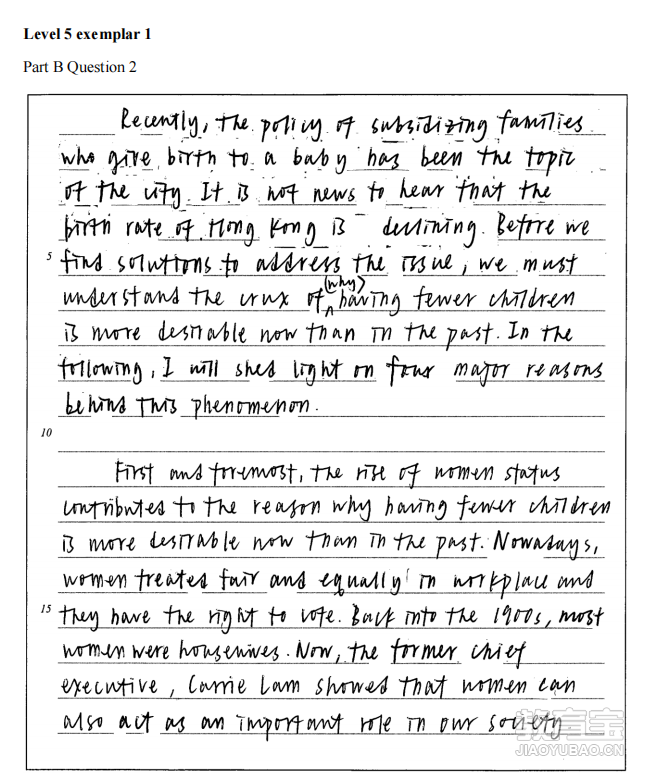 Level 5 exemplar 1
Part B Question 2
Recently, the policy of subsidizing families
who give birth to a baby has been the topic
of the city. It is not news to hear that the
birth rate of Hong Kong is declining. Before we
5 find solutions to address the issue, we must
(why)
understand the crux of having fewer children
is more desirable now than in the past. In the
following, I will shed light on four major reasons
behind this phenomenon.
10
First and foremost, the rise of women status
contributes to the reason why having fewer children
is more desirable now than in the past. Nowadays,
women treated fair and equally in workplace and
15 they have the right to vote. Back into the 1900s, most
women were housewives. Now, the former chief
executive, Carrie Lam showed that women can
also act as an important role in our society
教育宝
JIAOYUBAO.CN